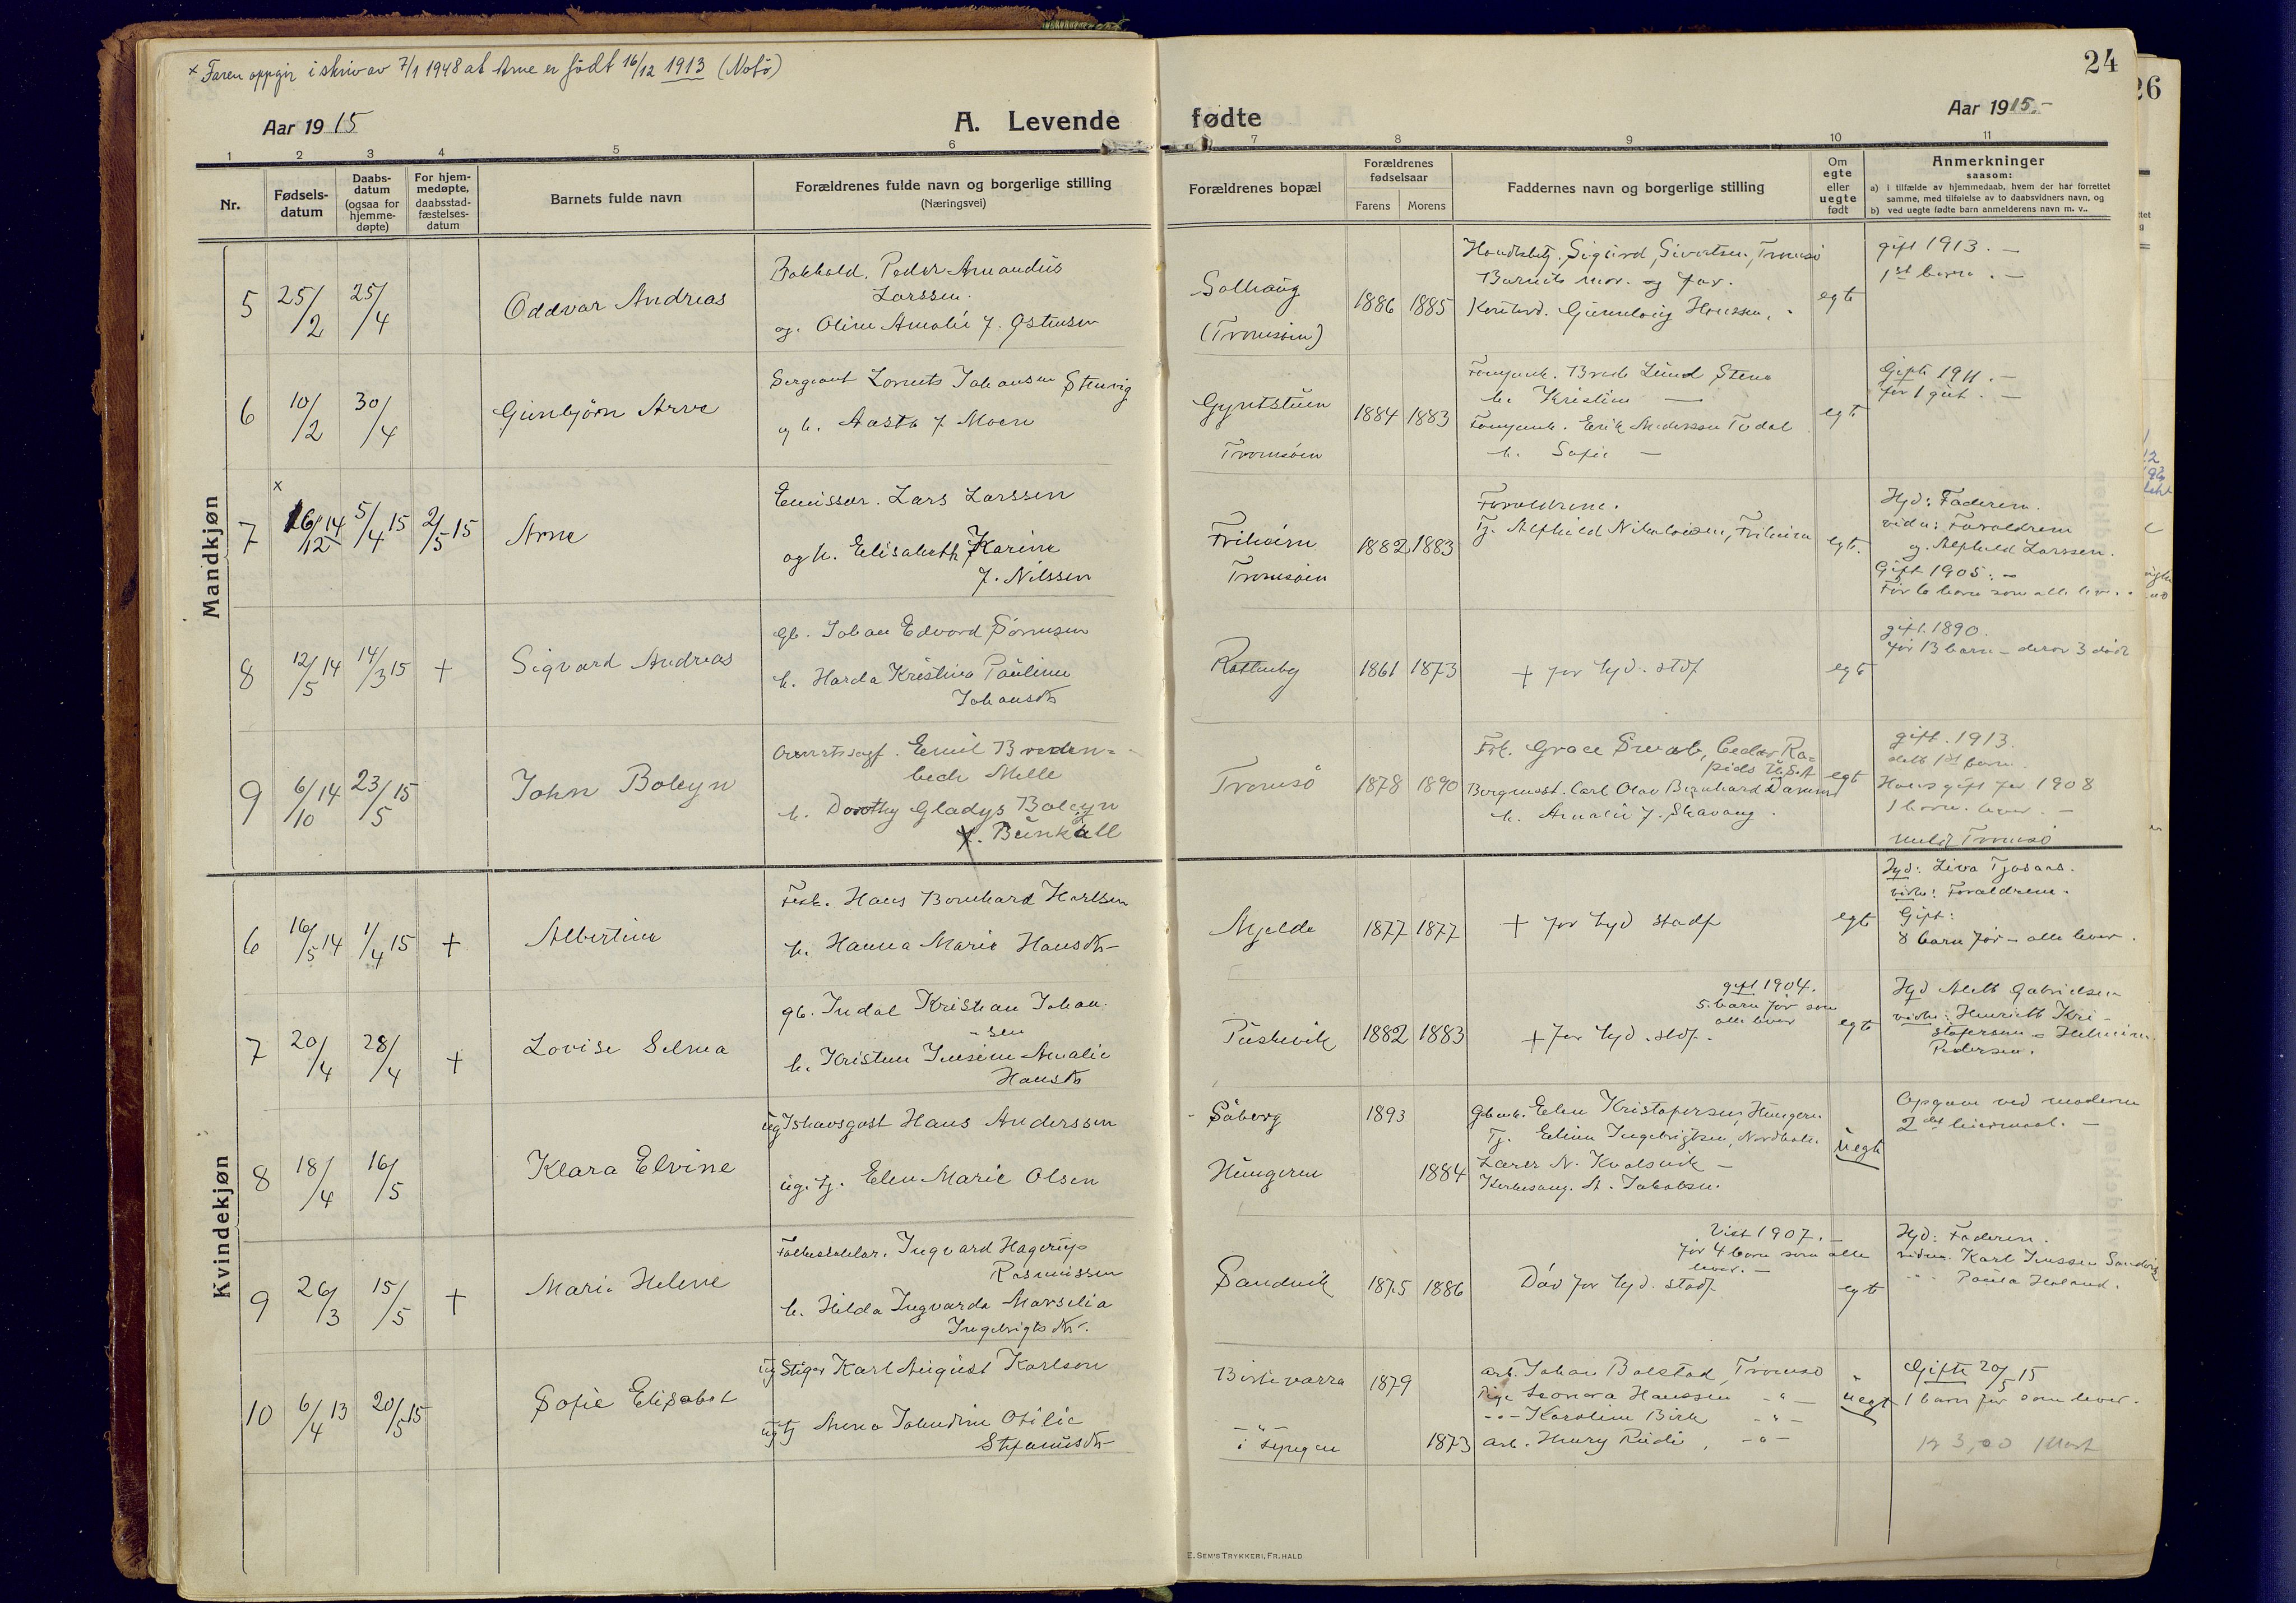 × Faren oppgir i skriv av 7/1 1948 at Arne er født 16/12 1913 (Notø)
24
26
Aar 1915
A. Levende fødte
Aar 1915.-
1 2 3 4 5 6 7 8 9 10 11
Nr.
Fødsels-
datum
Daabs-
datum
(ogsaa for
hjemme-
døpte)
For hjem-
medøpte,
daabsstad-
fæstelses-
datum
Barnets fulde navn
Forældrenes fulde navn og borgerlige stilling
(Næringsvei)
Forældrenes bopæl
Forældrenes
fødselsaar
Farens Morens
Faddernes navn og borgerlige stilling
Om
egte
eller
uegte
født
Anmerkninger
saasom:
a) i tilfælde av hjemmedaab, hvem der har forrettet
samme, med tilføielse av to daabsvidners navn, og
b) ved uegte fødte barn anmelderens navn m. v..
Mandkjøn
5 25/2 25/4 Oddvar Andreas
Peder Amandus
Larssen.
og. Oline Amalie f. Østensen
Solhaug
(Tromsøen)
1886 1885
Sigurd Sivertsen, Tromsø
Barnets mor. og far.
Gunnlaug Hanssen.
egte
gift 1913. -
1st barn. -
6 10/2 30/4 Gunbjørn Arve
Sergeant Lorents Johansen Stenvig
og h. Aasta f Moen
Gyntstuen
Tromsøen
1884 1883
Lund Stene
h. Kristine —
Erik Andersen Tudal
h. Sofie —
egte
Gifte 1911. -
før 1 gut. -
7 × 16/12 14 5/4 15 2/5 15 Arne
Emissær. Lars Larssen
og h. Elisabeth Karine
f. Nilssen
Friheim
Tromsøen
1882 1883
Forældrene.
Tj. Alfhild Nikolaisen, Friheim
egte.
Hjd: Faderen.
vidn: Forældrene
og. Alfhild Larssen.
Gift 1905. -
Før 6 barn som alle lever.
8 12/5 14 14/3 15 + Sigvard Andreas
Gb. Johan Edvard Sørensen
h. Harda Kristina Pauline
Johansdtr
1861 1873
+ før hjd. stdf
egte
gift. 1890.
før 13 barn - derav 3 død
9 6/10 14 23/5 15 John Boleyn
Emil Breden-
bech Melle
h. Dorothy Gladys Boleyn
f. Bunkall
Tromsø
1878 1890
Frk. Grace Swab, Cedar Ra-
pids U.S.A
Bergmest. Carl Olav Bernhard Damm
h. Amalie f. Skavang.
egte
gift. 1913.
dette 1st barn.
Hans gift før 1908
1 barn. lever. -
meld Tromsø
Kvindekjøn
6 16/5 14 1/4 15 + Albertine
Fisk. Hans Bernhard Karlsen
h. Hanna Marie Hansdtr
Mjelde
1877 1877
+ før hjd stadf
egte
Hjd: Liva Tjosaas.
vidn: Forældrene.
Gift:
8 barn før - alle lever.
7 20/4 28/4 + Lovise Selma
gb. Indal Kristian Johan-
sen
h. Kristine Jensine Amalie
Hansdtr
1882 1883
gift 1904.
5 barn før som
alle lever
+ før hjd. stdf.
egte
Hjd Alette Gabrielsen
vidn: Henriette Kri-
stofersen
Pedersen.
8 18/4 16/5 Klara Elvine
ug Ishavsgast Hans Anderssen
ug. tj. Elen Marie Olsen
Saberg
Hungeren
1893
1884
Elen Kristofersen, Hungeren
Tj. Eline Ingebrigtsen,
Lærer N. Kvalsvik -
Kirkesang. A. Jakobsen.
uegte
Opgave ved moderen
2det leiermaal. -
9 26/3 15/5 + Marie Helene
Ingvard Hagerup
Rasmussen
h. Hilda Ingvarda Marselia
Ingebrigtsdtr.
Sandvik
1875 1886
Viet 1907. -
før 4 barn som alle
lever. -
Døv før hjd. stadf
egte
Hjd: Faderen.
vidn. Karl Jenssen Sandvik
Paula Heland.
10 6/4 13 20/5 15 Sofie Elisabet
ug Stiger Karl August Karlson
ug tj Anna Johndine Otilie
Stefanusdtr
Birtavarra
-"-
i Lyngen
1879
1873
arb. Johan Bolstad, Tromsø
Pige Leonora Hanssen -"-
-"- Karoline Birk -"-
arb. Henry Rudi, -"-
uegte
Gifte 20/5 15
1 barn før som lever.
kr 3,00
E. SEM'S TRYKKERI, FR.HALD